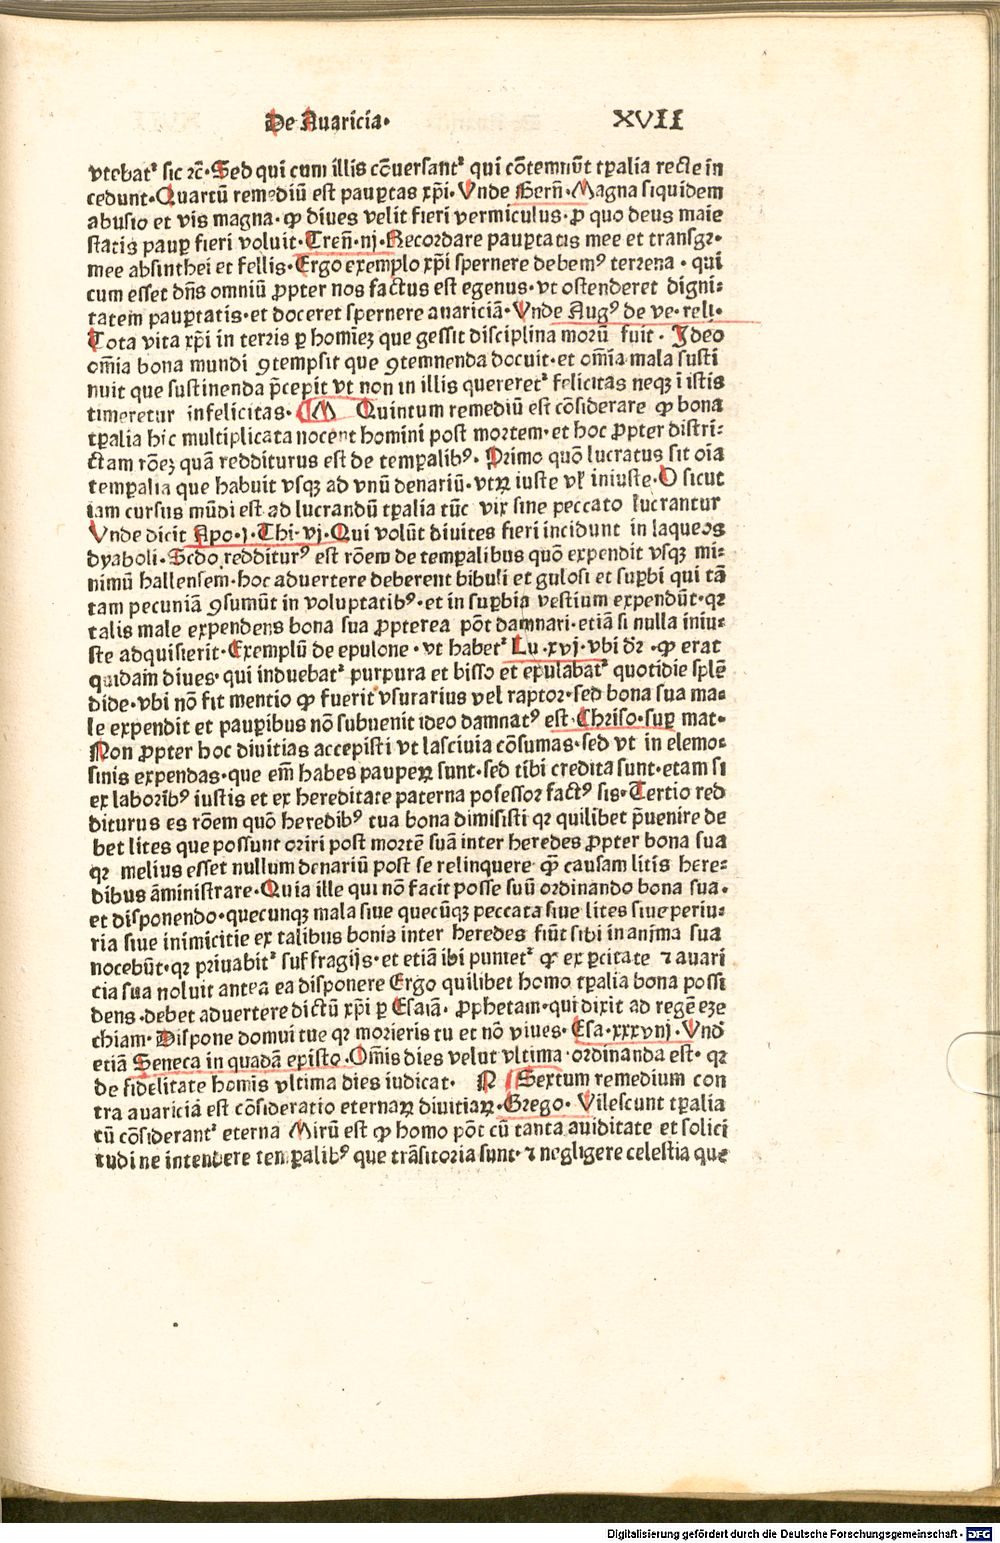 De Auaricia·
XVII
vtebat᷑ sic ⁊c̄·Sed qui cum illis cōuersant᷑ qui cōtemnūt tꝑalia recte in
cedunt·Quartū remediū est pauꝑtas xp̄i·Vnde Bern̄·Magna siquidem
abusio et vis magna·ꝙ diues velit fieri vermiculus·ꝓ quo deus maie
statis pauꝑ fieri voluit·Tren̄·iij·Recordare pauꝑtatis mee et transgr·
mee absinthei et fellis·Ergo exemplo xp̄i spernere debemꝰ terrena·qui
cum esset dn̄s omniū ꝓpter nos factus est egenus·vt ostenderet digni⸗
tatem pauꝑtatis·et doceret spernere auariciā·Vnde Augꝰ de ve·reli·
Tota vita xp̄i in terris ꝑ homiēꝫ que gessit disciplina morū fuit·Ideo
om̄ia bona mundi ꝯtempsit que ꝯtemnenda docuit·et om̄ia mala susti
nuit que sustinenda p̄cepit vt non in illis quereret᷑ felicitas neqꝫ ī istis
timeretur infelicitas· M Quintum remediū est cōsiderare ꝙ bona
tꝑalia hic multiplicata nocent homini post mortem·et hoc ꝓpter distri⸗
ctam rōeꝫ quā redditurus est de temꝑalibꝰ·Primo quō lucratus sit oīa
temꝑalia que habuit vsqꝫ ad vnū denariū·vtꝝ iuste vl iniuste·O sicut
iam cursus mūdi est ad lucrandū tꝑalia tūc vix sine peccato lucrantur
Vnde dicit Apo·j·Thi·vj·Qui volūt diuites fieri incidunt in laqueos
dyaboli·Scdo redditurꝰ est rōem de temꝑalibus quō expendit vsqꝫ mi⸗
nimū hallensem·hoc aduertere deberent bibuli et gulosi et suꝑbi qui tā
tam pecuniā ꝯsumūt in voluptatibꝰ·et in suꝑbia vestium expendūt·qꝛ
talis male expendens bona sua ꝓpterea pōt damnari·etiā si nulla iniu⸗
ste adquisierit·Exemplū de epulone·vt habet᷑ Lu·xvj·vbi dr̄·ꝙ erat
quidam diues·qui induebat᷑ purpura et bisso et epulabat᷑ quotidie splē
dide·vbi nō fit mentio ꝙ fuerit vsurarius vel raptor·sed bona sua ma⸗
le expendit et pauꝑibus nō subuenit ideo damnatꝰ est·Chriso·suꝑ mat·
Non ꝓpter hoc diuitias accepisti vt lasciuia cōsumas·sed vt in elemo⸗
sinis expendas·que em̄ habes paupeꝝ sunt·sed tibi credita sunt·etam si
ex laboribꝰ iustis et ex hereditate paterna posessor factꝰ sis·Tertio red
diturus es rōem quō heredibꝰ tua bona dimisisti qꝛ quilibet p̄uenire de
bet lites que possunt oriri post mortē suā inter heredes ꝓpter bona sua
qꝛ melius esset nullum denariū post se relinquere ꝙ̄ causam litis here⸗
dibus āministrare·Quia ille qui nō facit posse suū ordinando bona sua·
et disponendo·quecunqꝫ mala siue quecūqꝫ peccata siue lites siue periu⸗
ria siue inimicitie ex talibus bonis inter heredes fiūt sibi in anima sua
nocebūt·qꝛ priuabit᷑ suffragijs·et etiā ibi puniet᷑ ꝙ ex ꝑcitate ⁊ auari
cia sua noluit antea ea disponere Ergo quilibet homo tꝑalia bona possi
dens·debet aduertere dictū xp̄i ꝑ Esaiā·ꝓphetam·qui dixit ad regē eze
chiam·Dispone domui tue qꝛ morieris tu et nō viues·Esa·xxxviij·Vnd̄
etiā Seneca in quadā episto·Om̄is dies velut vltima·ordinanda est·qꝛ
de fidelitate homīs vltima dies iudicat· N Sextum remedium con
tra auariciā est cōsideratio eternaꝝ diuitiaꝝ·Grego·Vilescunt tꝑalia
cū cōsiderant᷑ eterna Mirū est ꝙ homo pōt cū tanta auiditate et solici
tudine intendere temꝑalibꝰ que trāsitoria sunt·⁊ negligere celestia que
Digitalisierung gefördert durch die Deutsche Forschungsgemeinschaft - DFG